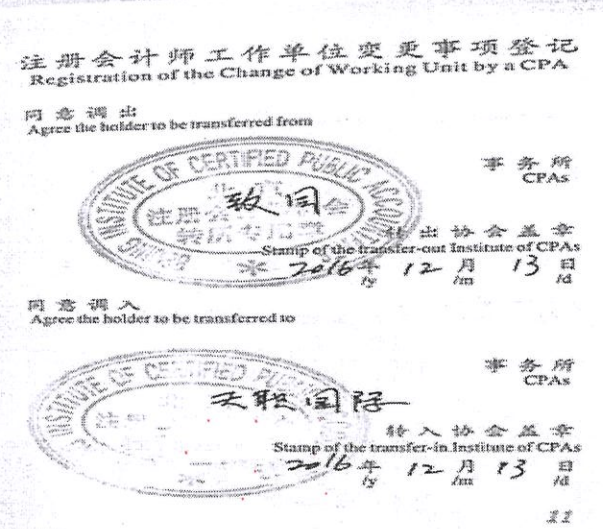 注册会计师工作单位变更事项登记
Registration of the Change of Working Unit by a CPA
同意调出
Agree the holder to be transferred from
BEIJING INSTITUTE OF CERTIFIED PUBLIC ACCOUNTANTS
致同
事务所
CPAs
注册会计师协会
转所专用章
转出协会盖章
Stamp of the transfer-out Institute of CPAs
2016年 12月 13日
/y /m /d
同意调入
Agree the holder to be transferred to
INSTITUTE OF CERTIFIED PUBLIC
天职国际
事务所
CPAs
转入协会盖章
Stamp of the transfer-in Institute of CPAs
2016年 12月 13日
/y /m /d
11